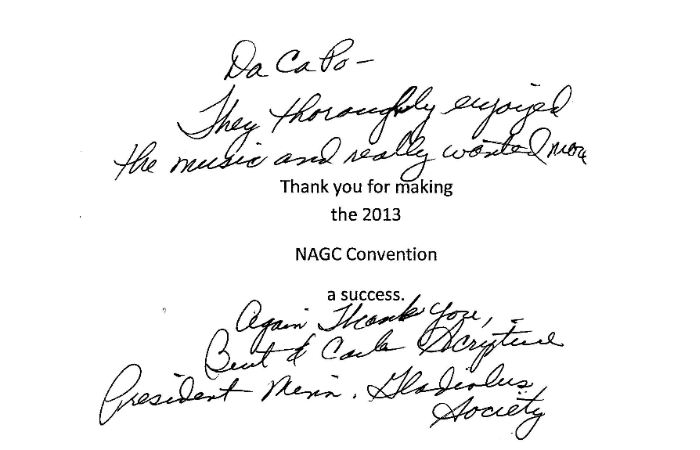 Da Capo –
They thoroughly enjoyed
the music and really wanted more
Thank you for making
the 2013
NAGC Convention
a success.
Again Thank You,
& Scripture
President Minn. Gladiolus
Society